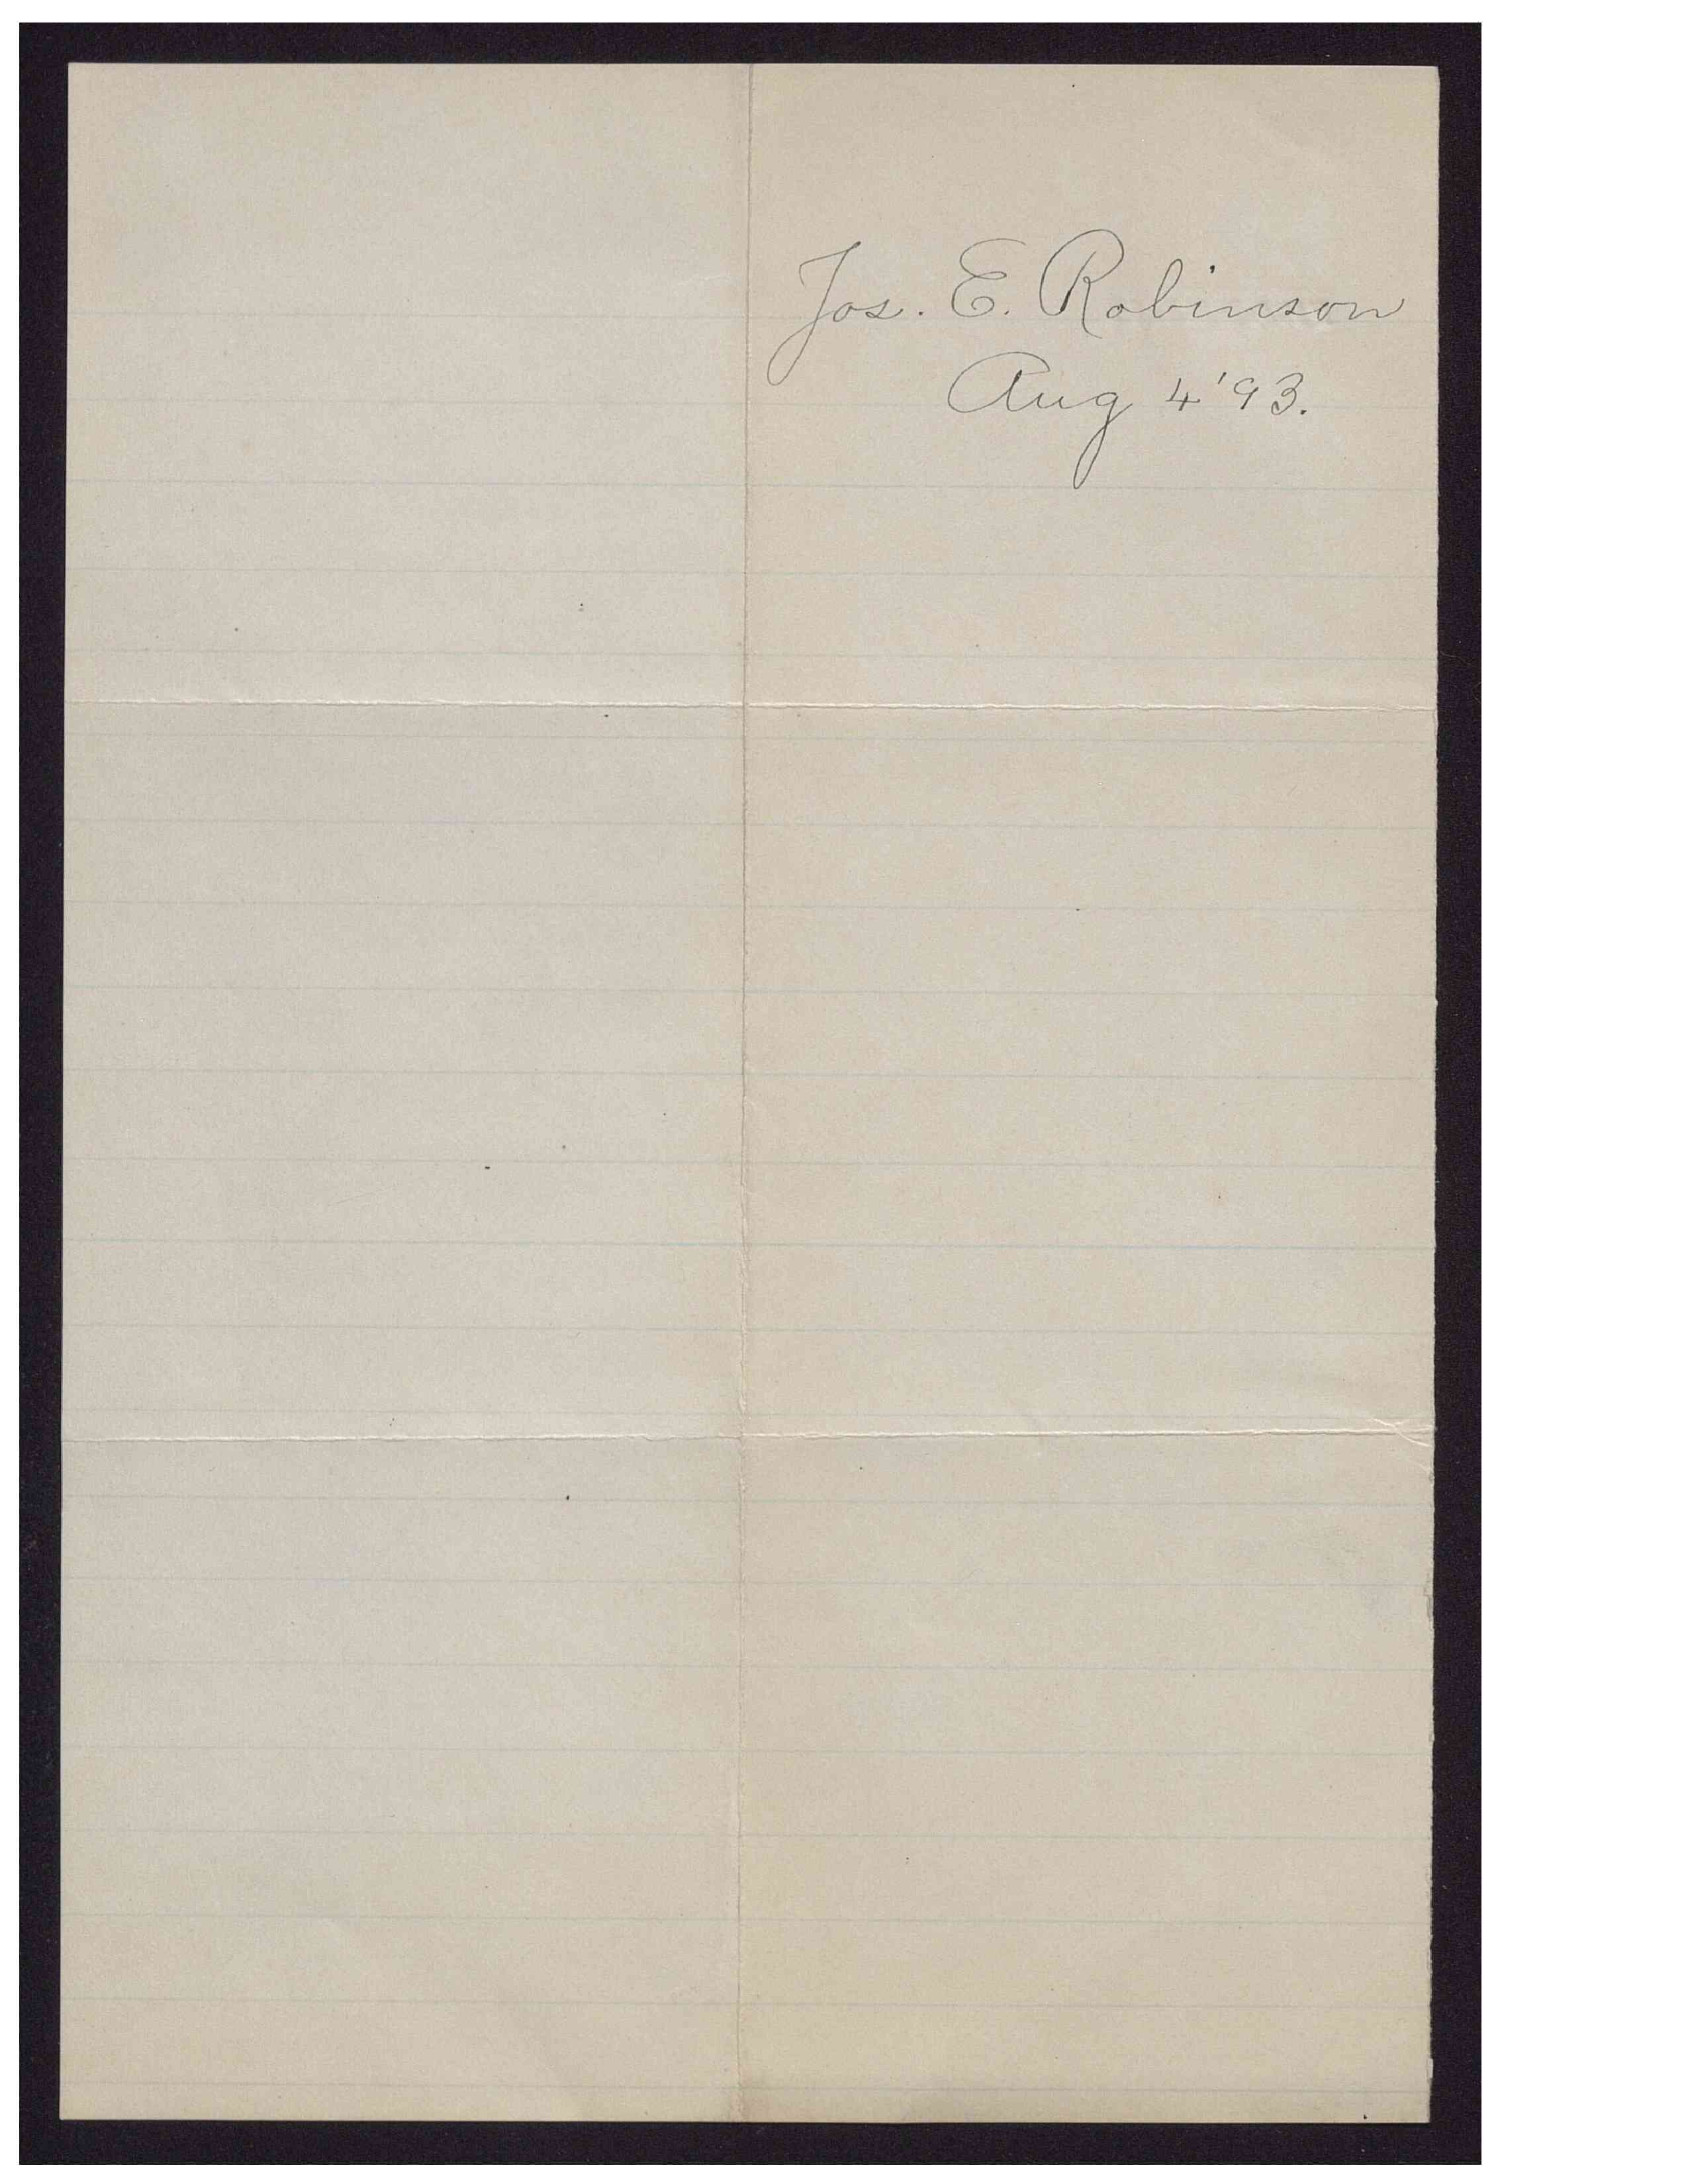 Jos. E. Robinson
Aug 4 '93.